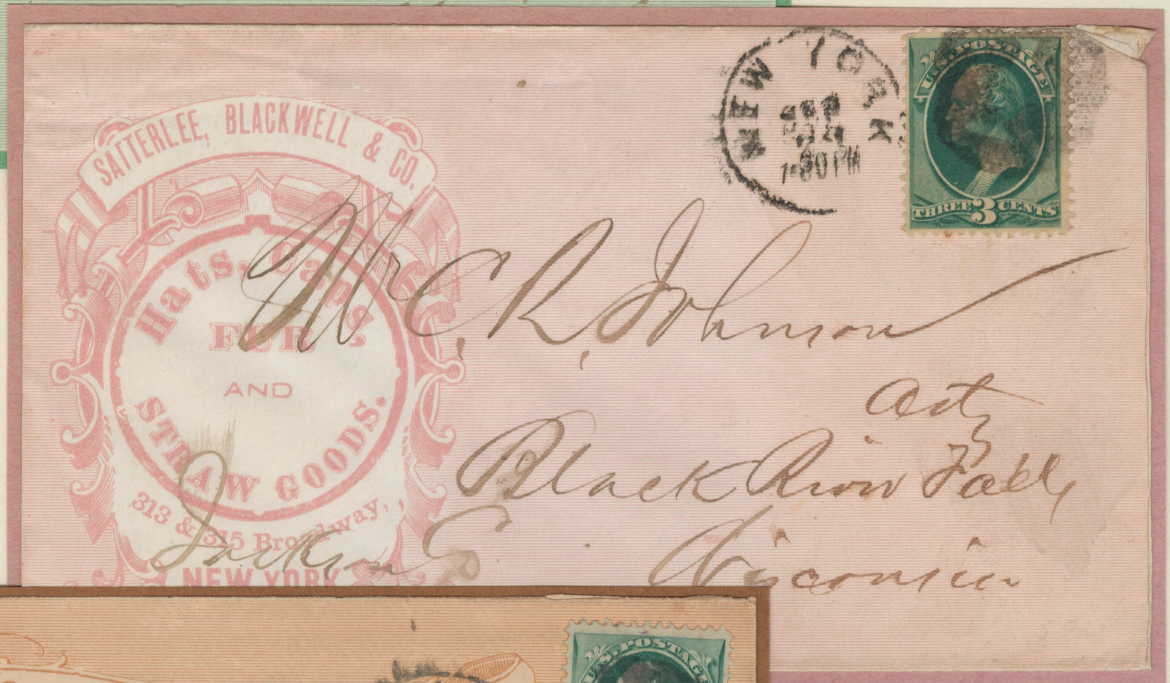 SATTERLEE, BLACKWELL & CO.
Hats, Caps,
FUR
AND
STRAW GOODS.
313 & 315 Broadway,
NEW YORK
NEW YORK
1-30 PM
U.S. POSTAGE
THREE 3 CENTS
Mr C. R. Johnson
Atty
Black River Falls
Jackson Co. Wisconsin
U.S. POSTAGE